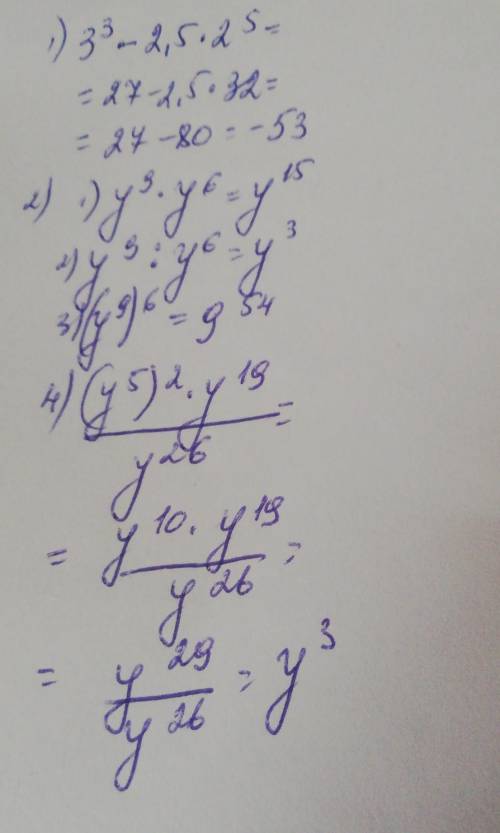 1) 3³ - 2,5 · 2⁵ =
= 27 - 2,5 · 32 =
= 27 - 80 = -53
2) 1) y⁹ · y⁶ = y¹⁵
2) y⁹ : y⁶ = y³
3) (y⁹)⁶ = 9⁵⁴
4) (y⁵)² · y¹⁹ =
y²⁶
= y¹⁰ · y¹⁹ =
y²⁶
= y²⁹ = y³
y²⁶